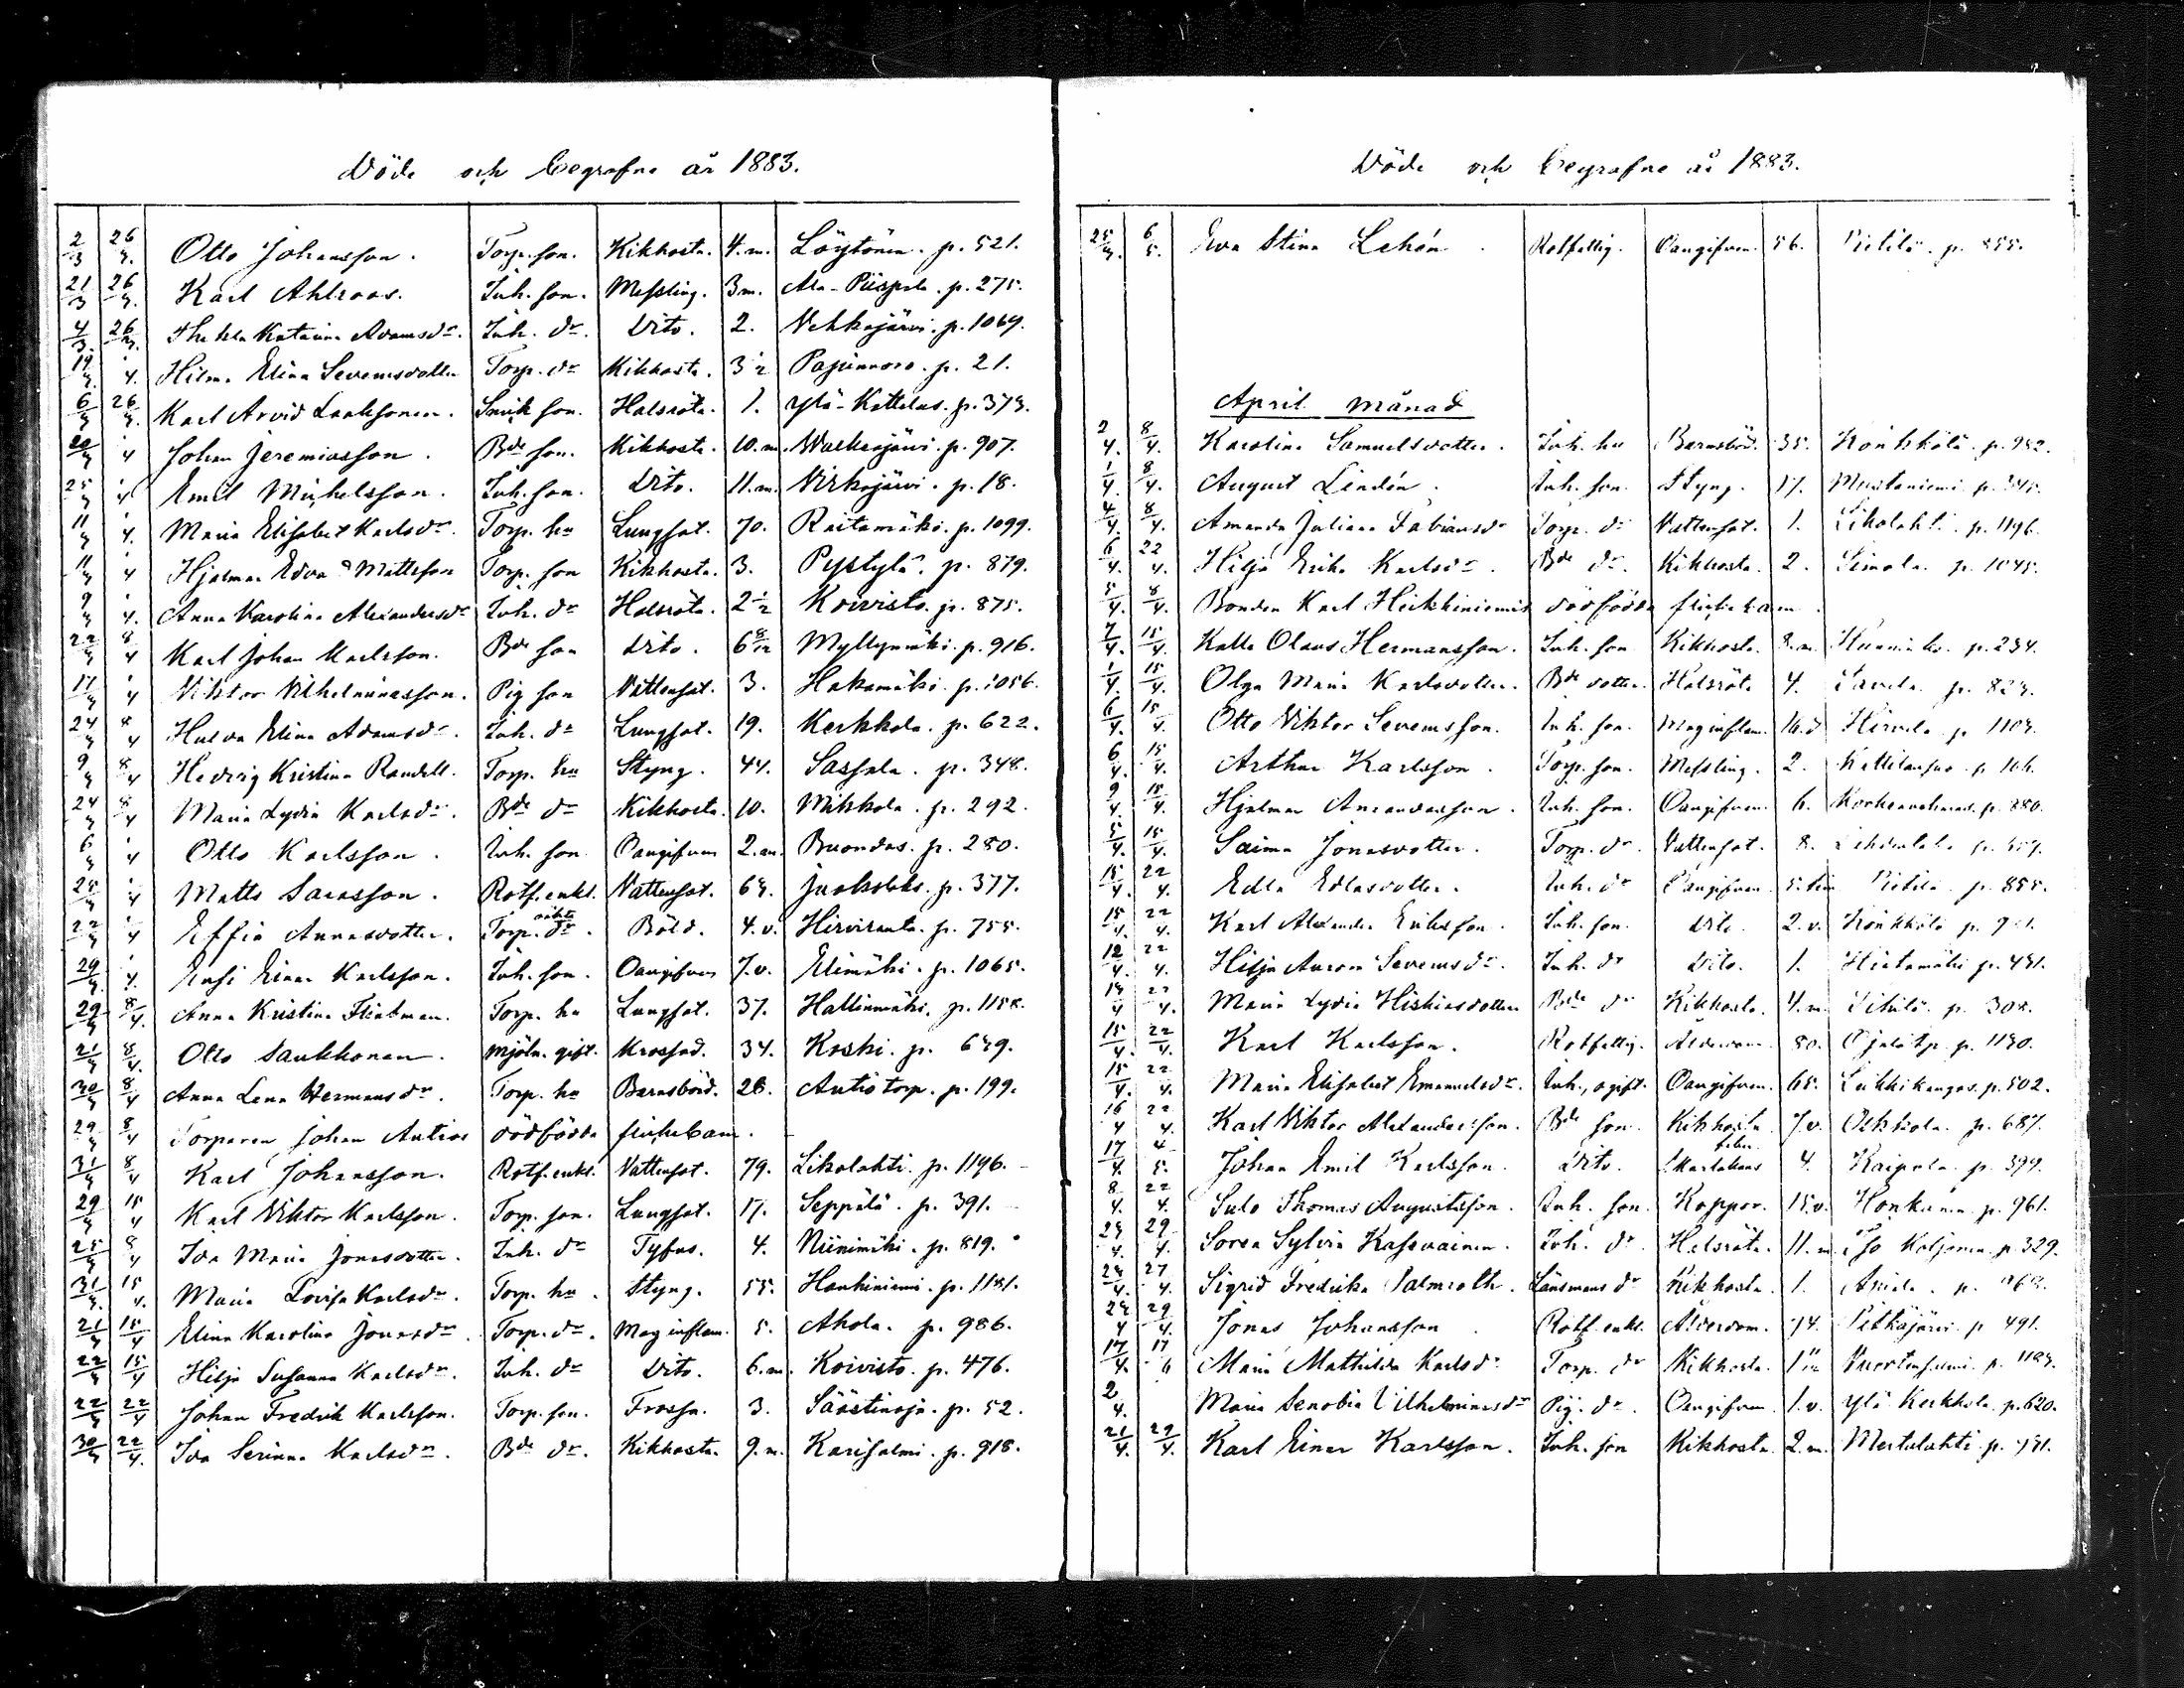 Döde och begrafne år 1883.
2/3 26/3. Otto Johansson. Torp. son. Kikhosta. 4. m. Löytönen. p. 521.
21/3 26/3. Karl Ahlroos. Inh. son. Messling. 3 m. Ala-Piispala. p. 275.
4/3. 26/3. Thekla Katarina Adamsdr. Inh. dr. Dito. 2. Vehkajärvi. p. 1069.
19/3. " 4. Hilma Elina Seremsdotter Torp. dr Kikhosta. 3 1/2 Pajunnoro. p. 21.
6/3 26/3. Karl Arvid Laaksonen. Smeds son. Halsröta. 1. Ylä-Kettelus. p. 373.
20/3 " 4 Johan Jeremiasson. Bde son. Kikhosta. 10. m. Walkeajärvi. p. 907.
25/3 " 4 Emil Mickelsson. Inh. son. Dito. 11. m. Virkajärvi. p. 18.
11/3 " 4. Maria Elisabet Karlsdr. Torp. hu Lungsot. 70. Raitamäki. p. 1099.
11/3 " 4 Hjalmar Edvard Mattsson Torp. son Kikhosta. 3. Pystylä. p. 879.
9/3 " 4. Anna Karolina Alexandersdr Inh. dr Halsröta. 2 1/2 Koivisto. p. 875.
22/3 8/4 Karl Johan Karlsson. Bde son Dito. 6 8/12 Myllymäki. p. 916.
17/3 " 4 Viktor Vilhelminasson. Pig son Vattensot. 3. Hakamäki. p. 1056.
24/3 8/4 Hulda Elina Adamsdr. Inh. dr Lungsot. 19. Kerkkola. p. 622.
9/3 8/4 Hedvig Kristina Randell. Torp. hu Styng. 44. Sassala. p. 348.
24/3 8/4 Maria Lydia Karlsdr. Bde dr Kikhosta. 10. Mikkola. p. 292.
6/3 " 4 Otto Karlsson. Inh. son Oangifven 2. m. Ruondas. p. 280.
25/3 " 4 Matts Sarasson. Rotf. enkl. Vattensot. 63. Jaakola. p. 377.
22/3 " 4 Effia Annasdotter. Torp. oäkta dr. Böld. 4. v. Hirviranta. p. 755.
29/3. " 4. Kusi Einar Karlsson. Inh. son. Oangifven 7. v. Elimäki. p. 1065.
29/3 8/4. Anna Kristina Flinkman. Torp. hu Lungsot. 37. Hallinmäki. p. 1158.
21/3 8/4. Otto Saukkonen. Mjöln. gift. Krossad. 34. Koski. p. 649.
30/3 8/4 Anna Lena Hermansdr. Torp. hu Barnsbörd. 28. Autio torp. p. 199.
29/3 8/4 Torparen Johan Autios dödfödda flickebarn.
31/3 8/4 Karl Johansson. Rotf. enkl. Vattensot. 79. Likolahti. p. 1196.
29/3 15/4 Karl Viktor Karlsson. Torp. son. Lungsot. 17. Seppälä. p. 391.
25/3 8/4 Ida Maria Jonasdotter. Inh. dr Tyfus. 4. Niinimäki. p. 819.
31/3. 15/4. Maria Lovisa Karlsdr. Torp. hu. Styng. 55. Haukiniemi. p. 1181.
21/3 15/4 Elina Karolina Jonasdr. Torp. dr. Mag inflam. 5. Ahola. p. 986.
22/3 15/4 Hilja Susanna Karlsdr. Inh. dr Dito. 6. m. Koivisto. p. 476.
22/3 22/4 Johan Fredrik Karlsson. Torp. son. Frossa. 3. Säästinoja. p. 52.
30/3 22/4. Ida Serinna Karlsdr. Bde dr. Kikhosta. 9. m. Karisalmi. p. 918.
Döde och begrafne år 1883.
25/3. 6/5. Eva Stina Lehén. Rotfattig. Oangifven. 56. Pietilä. p. 855.
April månad
2/4. 8/4. Karolina Samuelsdotter. Inh. hu Barnsbörd. 35. Könkkölä. p. 982.
1/4. 8/4. August Lindén. Inh. son. Styng. 17. Mustaniemi. p.
4/4. 8/4. Amanda Juliana Fabiansdr Torp. dr Vattensot. 1. Likolahti. p. 1196.
6/4. 22/4. Hilja Erika Karlsdr. Bde dr. Kikhosta. 2. Simola. p. 1045.
5/4. 8/4. Bonden Karl Heikkiniemis dödfödda flickebarn.
7/4. 15/4. Kalle Olaus Hermansson. Inh. son Kikhosta. 8. m. p. 234.
1/4. 15/4. Olga Maria Karlsdotter. Bde dotter. Halsröta 4. Savela. p. 823.
6/4. 15/4. Otto Viktor Seremsson. Inh. son. Mag inflam. 16. d Hirvelä. p. 1103.
6/4. 15/4. Arthur Karlsson. Torp. son. Messling. 2. p. 166.
9/4. 15/4. Hjalmar Amandasson. Inh. son. Oangifven. 6. p. 880.
5/4. 15/4. Saima Jonasdotter. Torp. dr. Vattensot. 8.
15/4. 22/4. Edla Edlasdotter. Inh. dr Oangifven. 5. tim Pietilä. p. 855.
15/4. 22/4. Karl Alexander Eriksson. Inh. son. Dito. 2. v. Könkkölä p.
12/4. 22/4. Hilja Aurora Seremsdr. Inh. dr Dito. 1. Hietamäki p. 431.
13/4 22/4. Maria Lydia Hiskiasdotter Bde dr Kikhosta. 4. m. p. 308.
15/4. 22/4. Karl Karlsson. Rotfattig. Ålderdom. 80. p. 1130.
15/4. 22/4. Maria Elisabet Emanuelsdr. Inh., ogift. Oangifven. 65. Leikkikangas. p. 502.
16/4 22/4. Karl Viktor Alexandersson. Bde son. Kikhosta. 7. v. Ockkola. p. 687.
17/4. 4/5. Johan Emil Karlsson. Dito. Skarlakans feber. 4. Kaipola. p. 399.
8/4. 22/4. Sulo Thomas Augustsson. Inh. son. Koppor. 15. v. Honkanen. p. 961.
23/4. 29/4. Sorea Sylvia Kasevainen. Inh. dr. Halsröta. 11. m. Iso Koljonen. p. 329.
23/4. 27/4. Sigrid Fredrika Palmroth. Länsmans dr Kikhosta. 1. Aniala. p.
24/4 29/4. Jonas Johansson. Rotf. enkl. Ålderdom. 74. Pitkäjärvi. p. 491.
17/4. 17/6 Maria Mathilda Karlsdr Torp. dr Kikhosta. p. 1193.
2/4. Maria Senobia Vilhelminasdr Pig. dr. Oangifven. 1. v. Ylä Kerkkola. p. 620.
21/4. 29/4. Karl Einar Karlsson. Inh. son Kikhosta. 2. m. Mertalahti. p. 431.